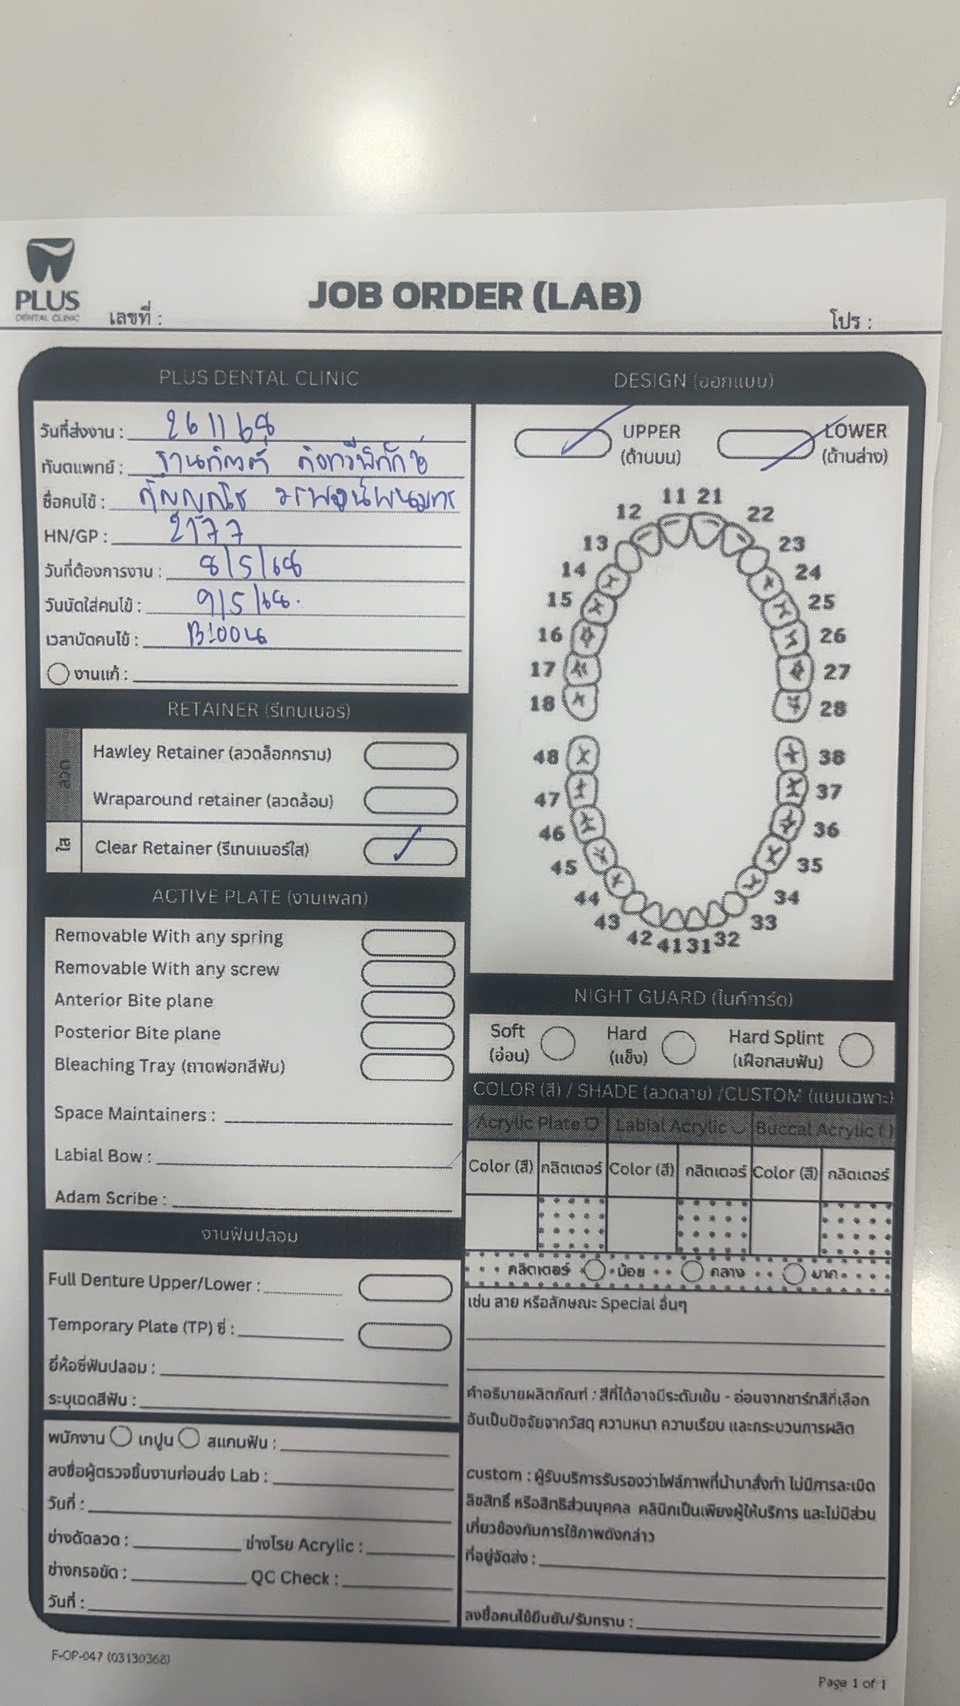 PLUS
DENTAL CLINIC
JOB ORDER (LAB)
เลขที่ :
โปร :
PLUS DENTAL CLINIC
วันที่ส่งงาน :
ทันตแพทย์ :
ชื่อคนไข้ :
HN/GP : 2177
วันที่ต้องการงาน : 8/5/68
วันนัดใส่คนไข้ : 9/5/68.
เวลานัดคนไข้ :
งานแก้ :
RETAINER (รีเทนเนอร์)
ลวด
Hawley Retainer (ลวดล็อกกราม)
Wraparound retainer (ลวดล้อม)
ใส
Clear Retainer (รีเทนเนอร์ใส)
ACTIVE PLATE (งานเพลท)
Removable With any spring
Removable With any screw
Anterior Bite plane
Posterior Bite plane
Bleaching Tray (ถาดฟอกสีฟัน)
Space Maintainers :
Labial Bow :
Adam Scribe :
งานฟันปลอม
Full Denture Upper/Lower :
Temporary Plate (TP) ซี่ :
ยี่ห้อซี่ฟันปลอม :
ระบุเฉดสีฟัน :
พนักงาน เทปูน สแกนฟัน :
ลงชื่อผู้ตรวจชิ้นงานก่อนส่ง Lab :
วันที่ :
ช่างดัดลวด : ช่างโรย Acrylic :
ช่างกรอขัด : QC Check :
วันที่ :
DESIGN (ออกแบบ)
UPPER
(ด้านบน)
LOWER
(ด้านล่าง)
11 21
12 22
13 23
14 24
15 25
16 26
17 27
18 28
48 38
47 37
46 36
45 35
44 34
43 33
42 41 31 32
NIGHT GUARD (ไนท์การ์ด)
Soft
(อ่อน)
Hard
(แข็ง)
Hard Splint
(เฝือกสบฟัน)
COLOR (สี) / SHADE (ลวดลาย) /CUSTOM (แบบเฉพาะ)
Acrylic Plate Labial Acrylic Buccal Acrylic ( )
Color (สี) กลิตเตอร์ Color (สี) กลิตเตอร์ Color (สี) กลิตเตอร์
กลิตเตอร์ น้อย กลาง มาก
เช่น ลาย หรือลักษณะ Special อื่นๆ
คำอธิบายผลิตภัณฑ์ : สีที่ได้อาจมีระดับเข้ม - อ่อนจากชาร์ทสีที่เลือก
อันเป็นปัจจัยจากวัสดุ ความหนา ความเรียบ และกระบวนการผลิต
custom : ผู้รับบริการรับรองว่าไฟล์ภาพที่นำมาสั่งทำ ไม่มีการละเมิด
ลิขสิทธิ์ หรือสิทธิส่วนบุคคล คลินิกเป็นเพียงผู้ให้บริการ และไม่มีส่วน
เกี่ยวข้องกับการใช้ภาพดังกล่าว
ที่อยู่จัดส่ง :
ลงชื่อคนไข้ยืนยัน/รับทราบ :
F-OP-047 (03130368)
Page 1 of 1